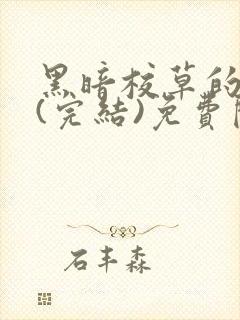 黑暗校草的
(完結)免費
石丰森